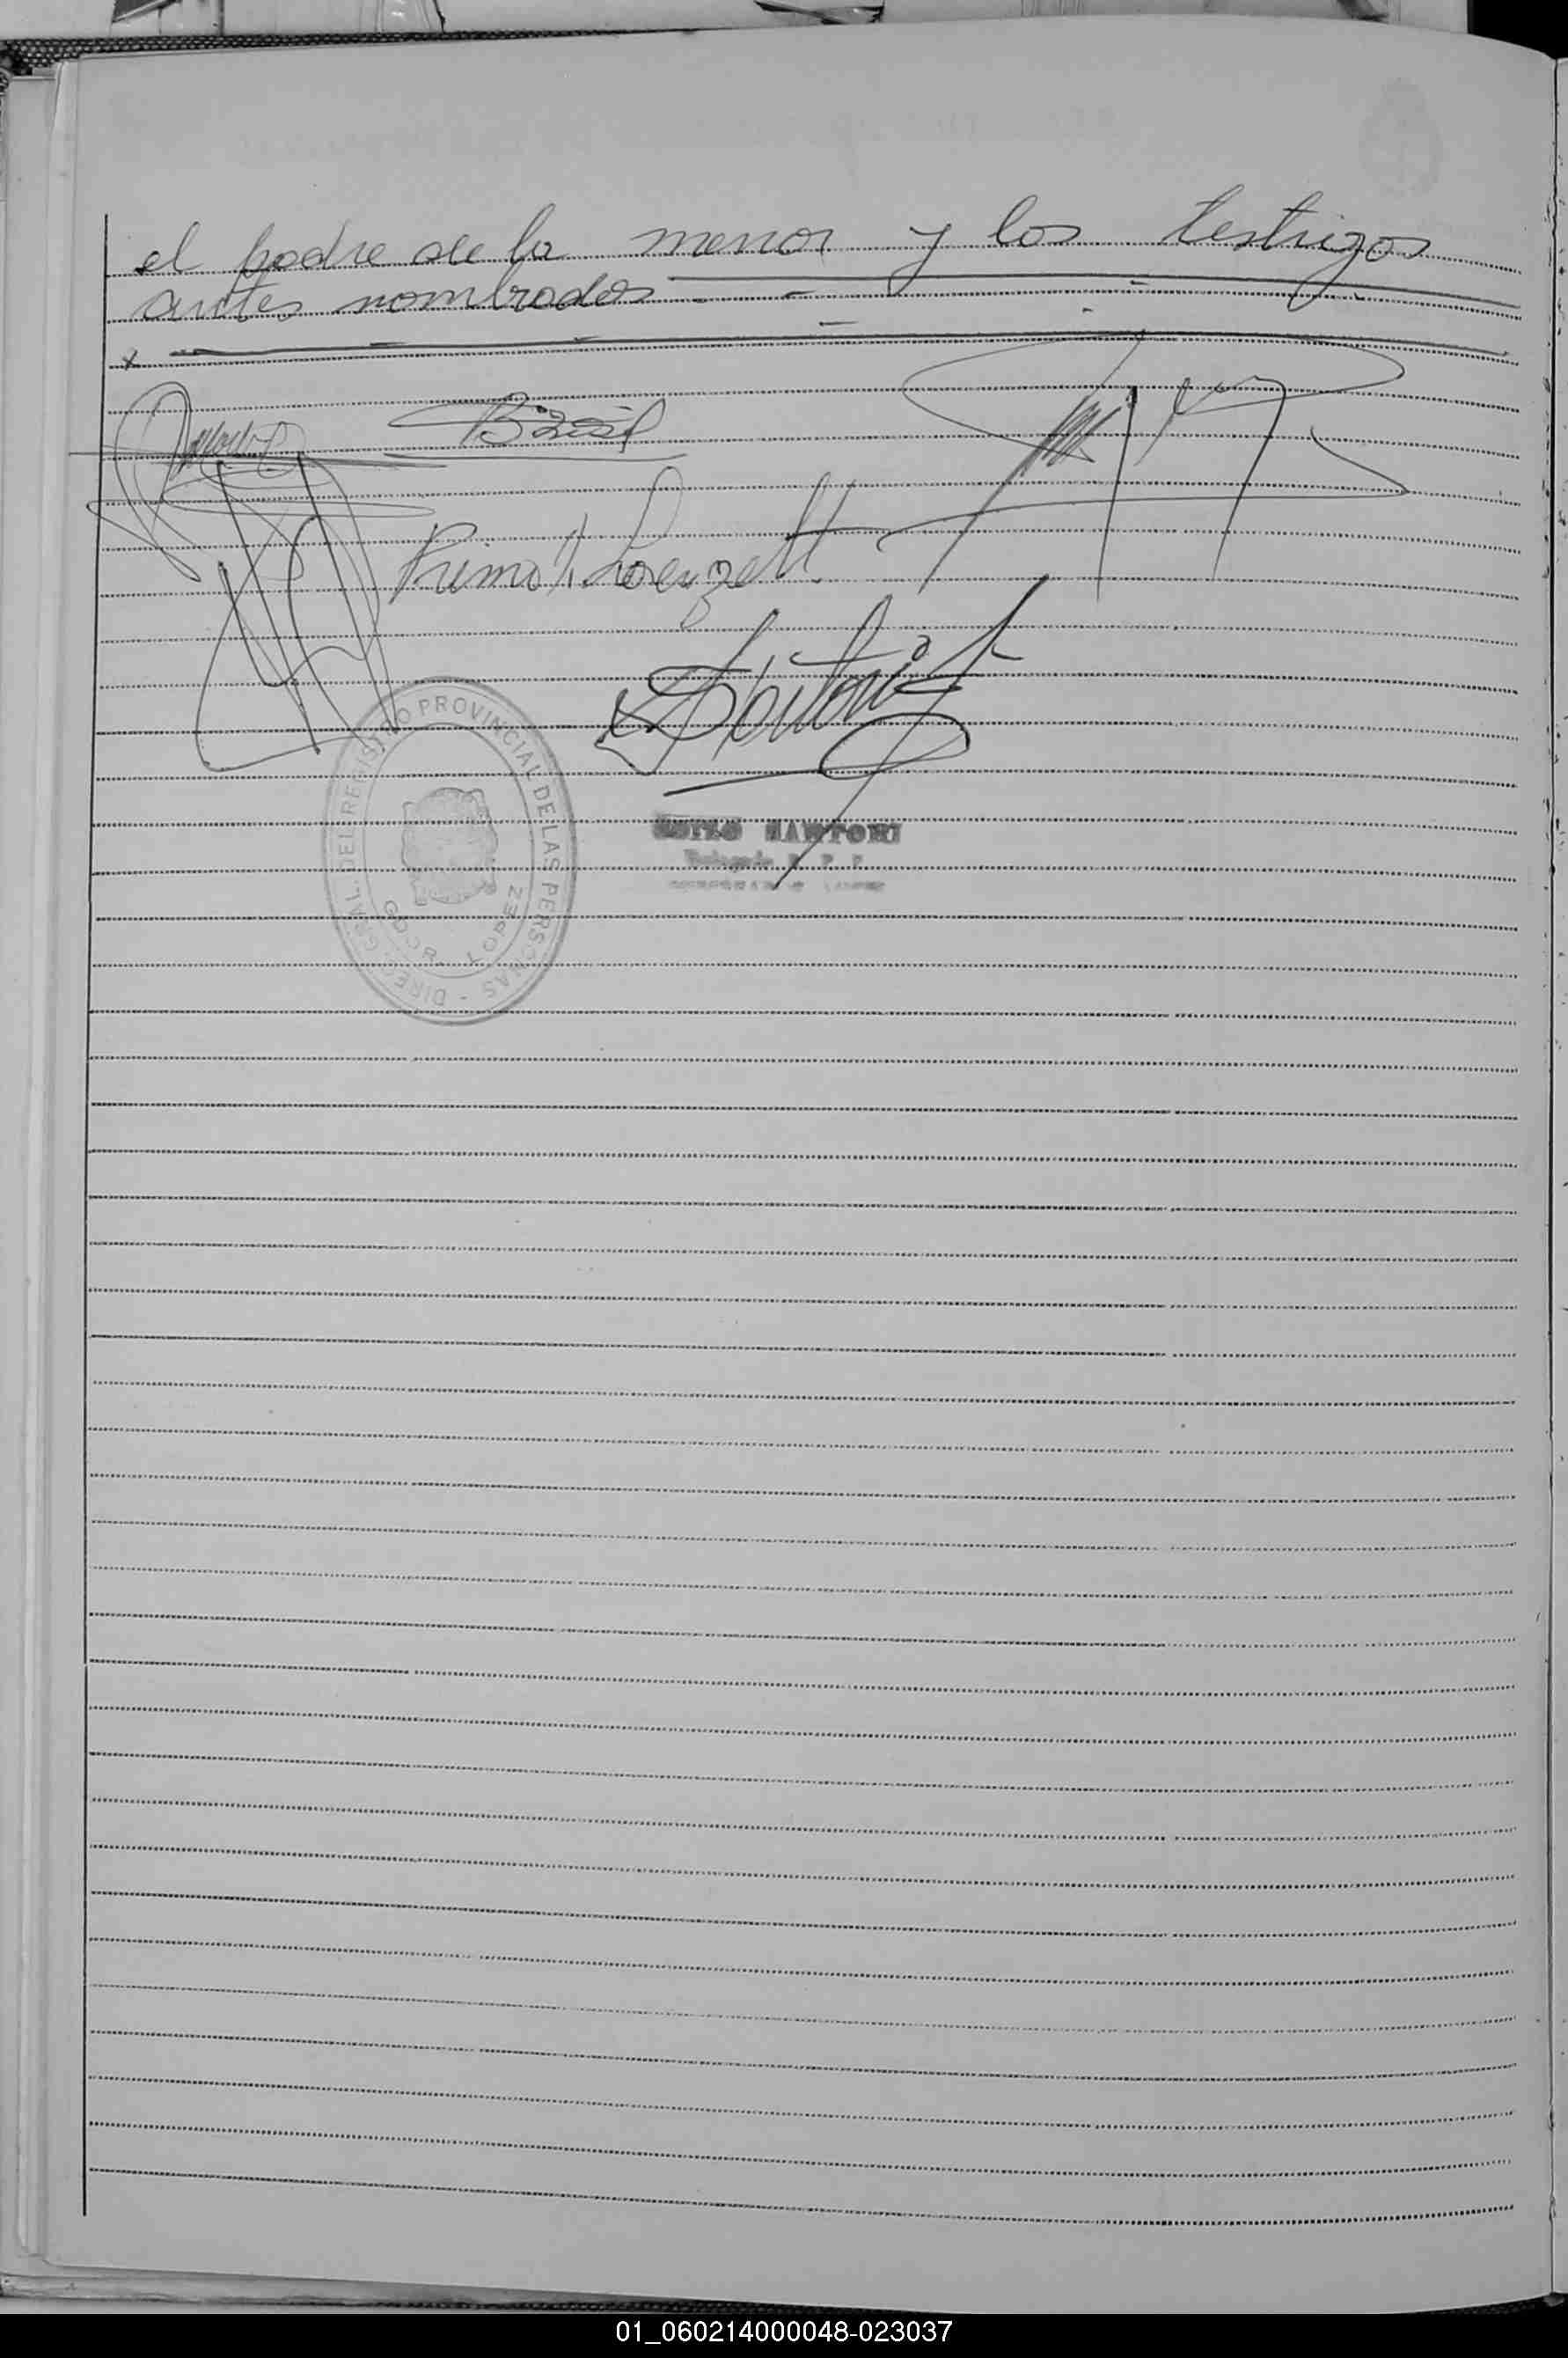 el padre de la menor y los testigos
antes nombrados
Primo Lorenzetti
DIREC. GRAL. DEL REGISTRO PROVINCIAL DE LAS PERSONAS -
GDOR. LOPEZ
SANTORI
Delegado R. P. P.
01_060214000048-023037